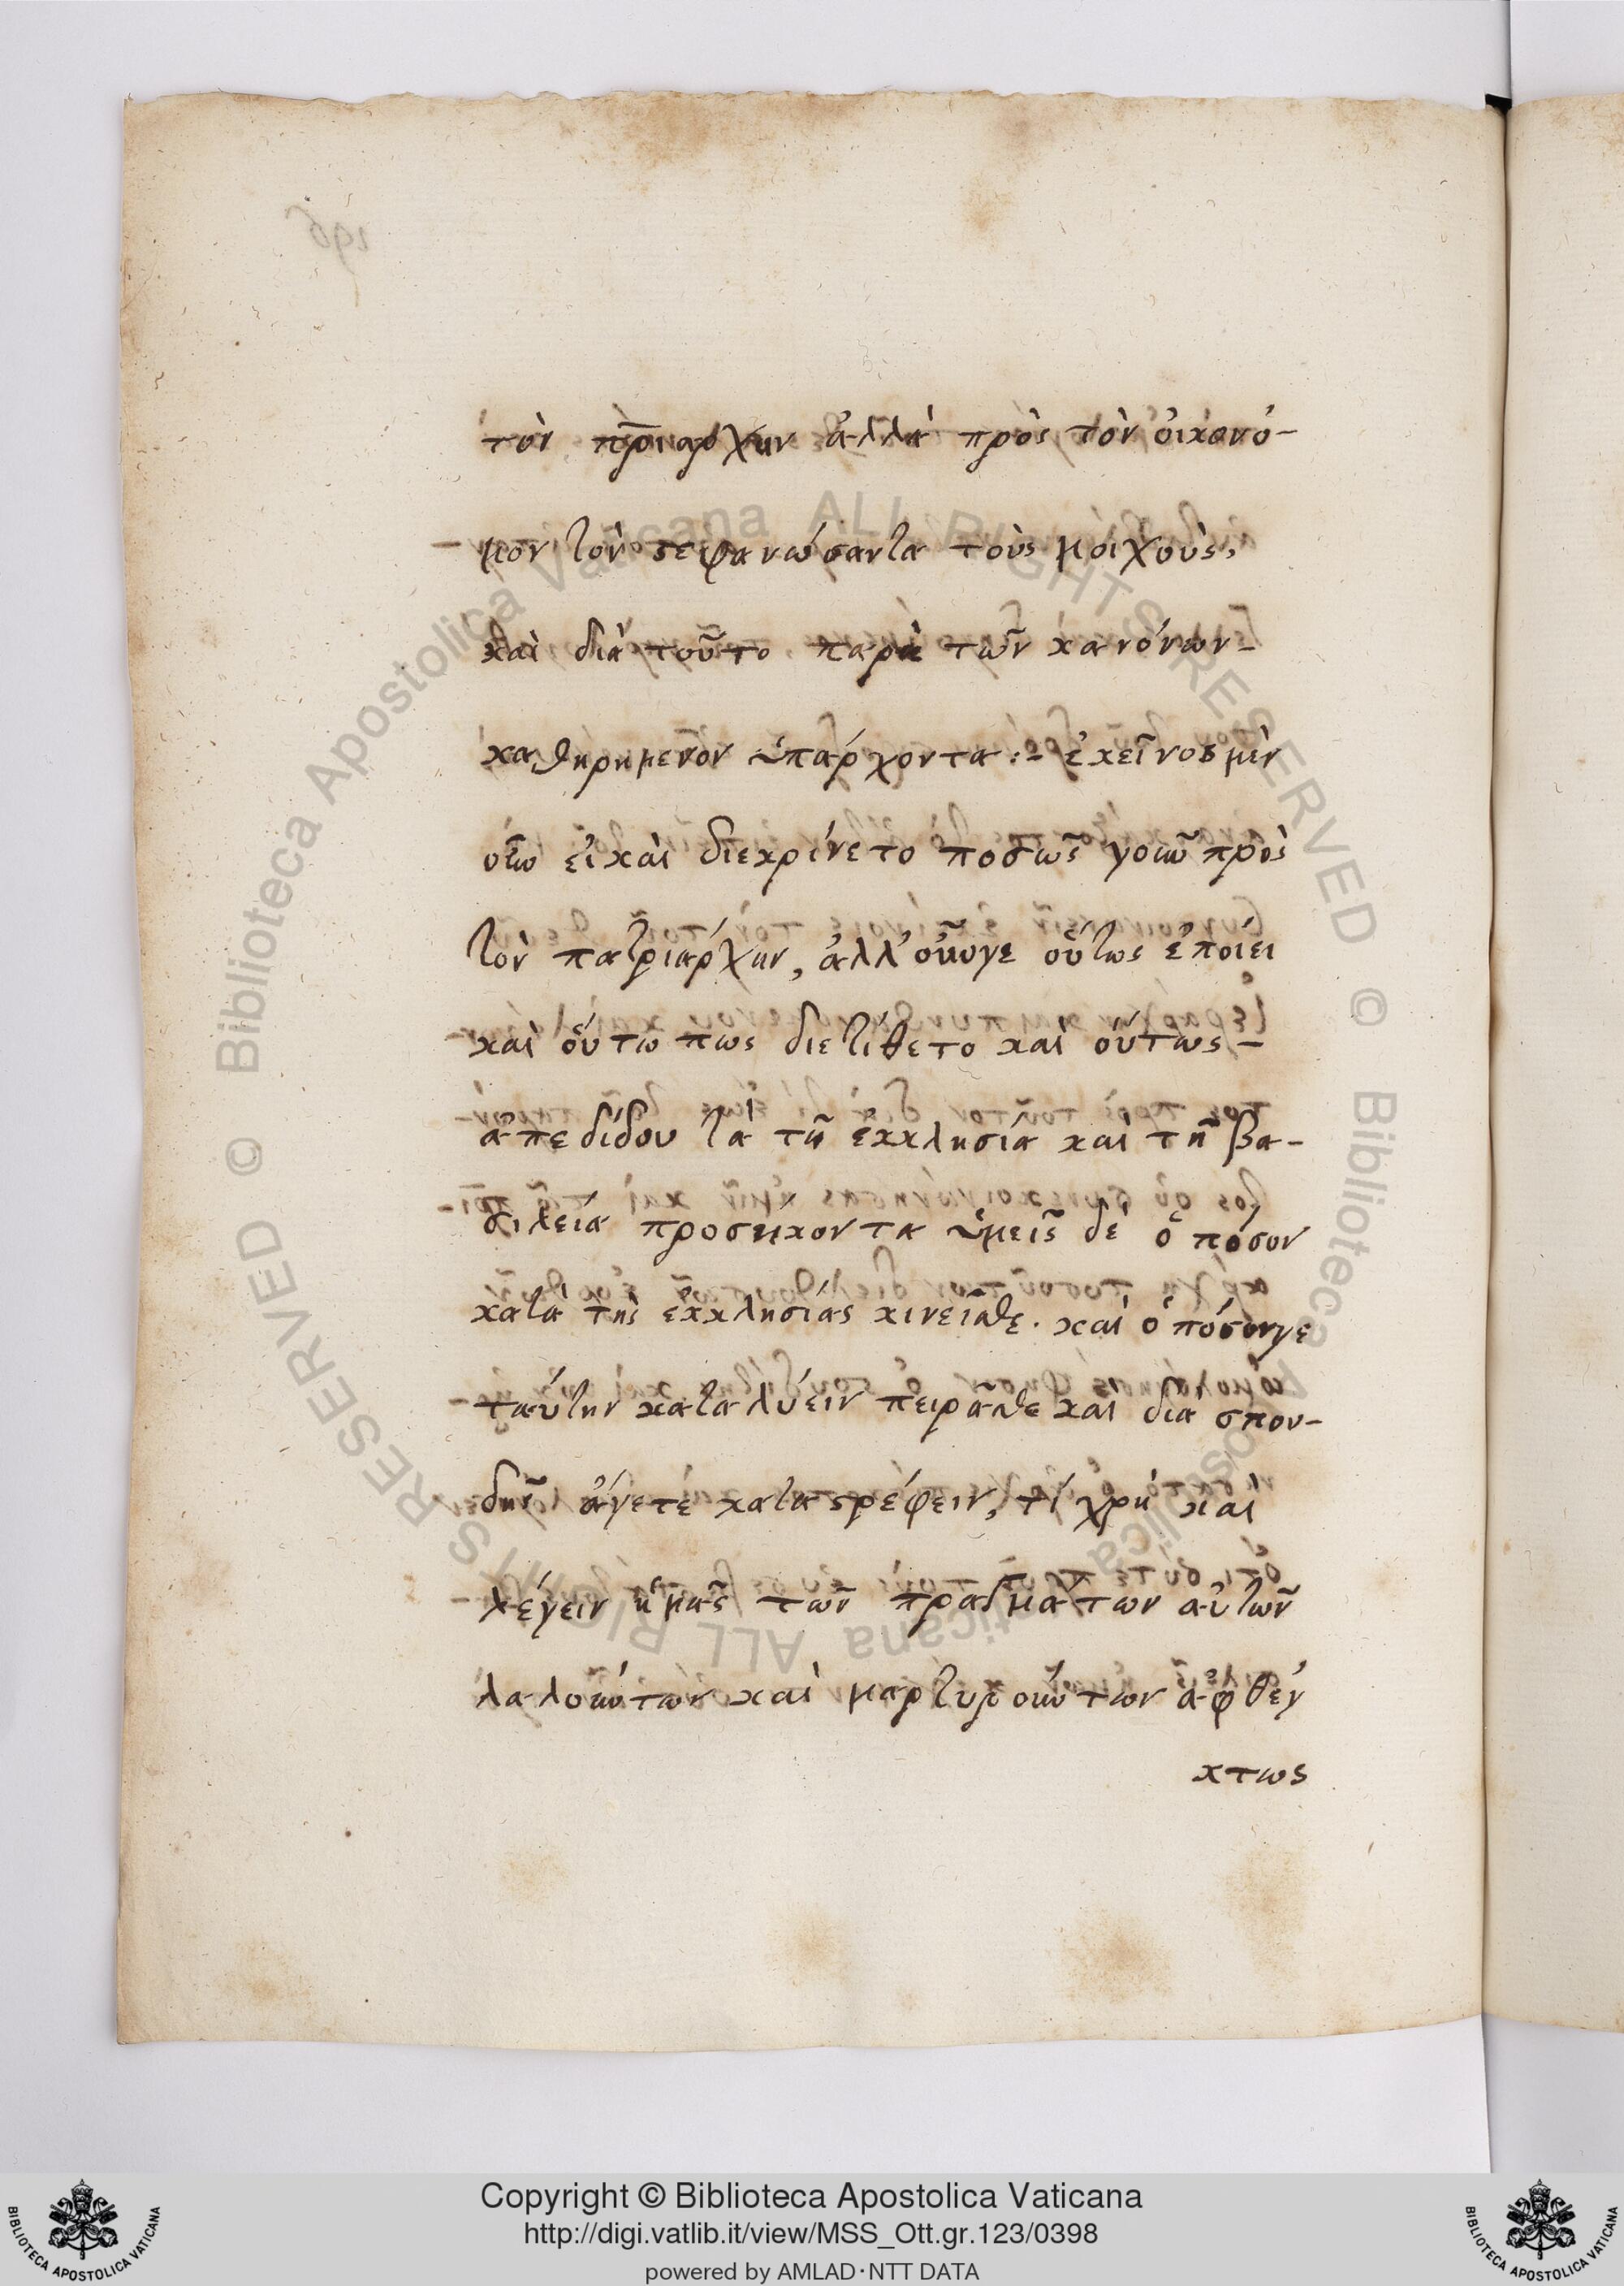 τὸν πριάρχην ἀλλὰ πρὸς τὸν οἰκονό-
μον τὸν στεφανώσαντα τοὺς μοιχοὺς,
καὶ διὰ τοῦτο παρὰ τῶν κανόνων-
καθῃρημένον ὑπάρχοντα :- ἐκεῖνος μὲν
οὕτω εἰ καὶ διεκρίνετο ποσῶς γοῦν πρὸς
τὸν πατριάρχην, ἀλλ' οὖνγε οὕτως ἐποίει
καὶ οὕτω πως διετίθετο καὶ οὕτως-
ἀπεδίδου τὰ τῆ ἐκκλησία καὶ τῆ βα-
σιλεία προσήκοντα ὑμεῖς δὲ ὁπόσον
κατὰ τῆς ἐκκλησίας κινεῖσθε. καὶ ὁπόσονγε
ταύτην καταλύειν πειρᾶσθε καὶ διὰ σπου-
δῆς ἄγετε καταστρέφειν, τί χρὴ καὶ
λέγειν ἡμᾶς τῶν πραγμάτων αὐτῶν
λαλούντων καὶ μαρτυρούντων ἀφθέγ
κτως
Copyright © Biblioteca Apostolica Vaticana
http://digi.vatlib.it/view/MSS_Ott.gr.123/0398
powered by AMLAD·NTT DATA
BIBLIOTECA APOSTOLICA VATICANA
BIBLIOTECA APOSTOLICA VATICANA
© Biblioteca Apostolica Vaticana ALL RIGHTS RESERVED
© Biblioteca Apostolica Vaticana ALL RIGHTS RESERVED